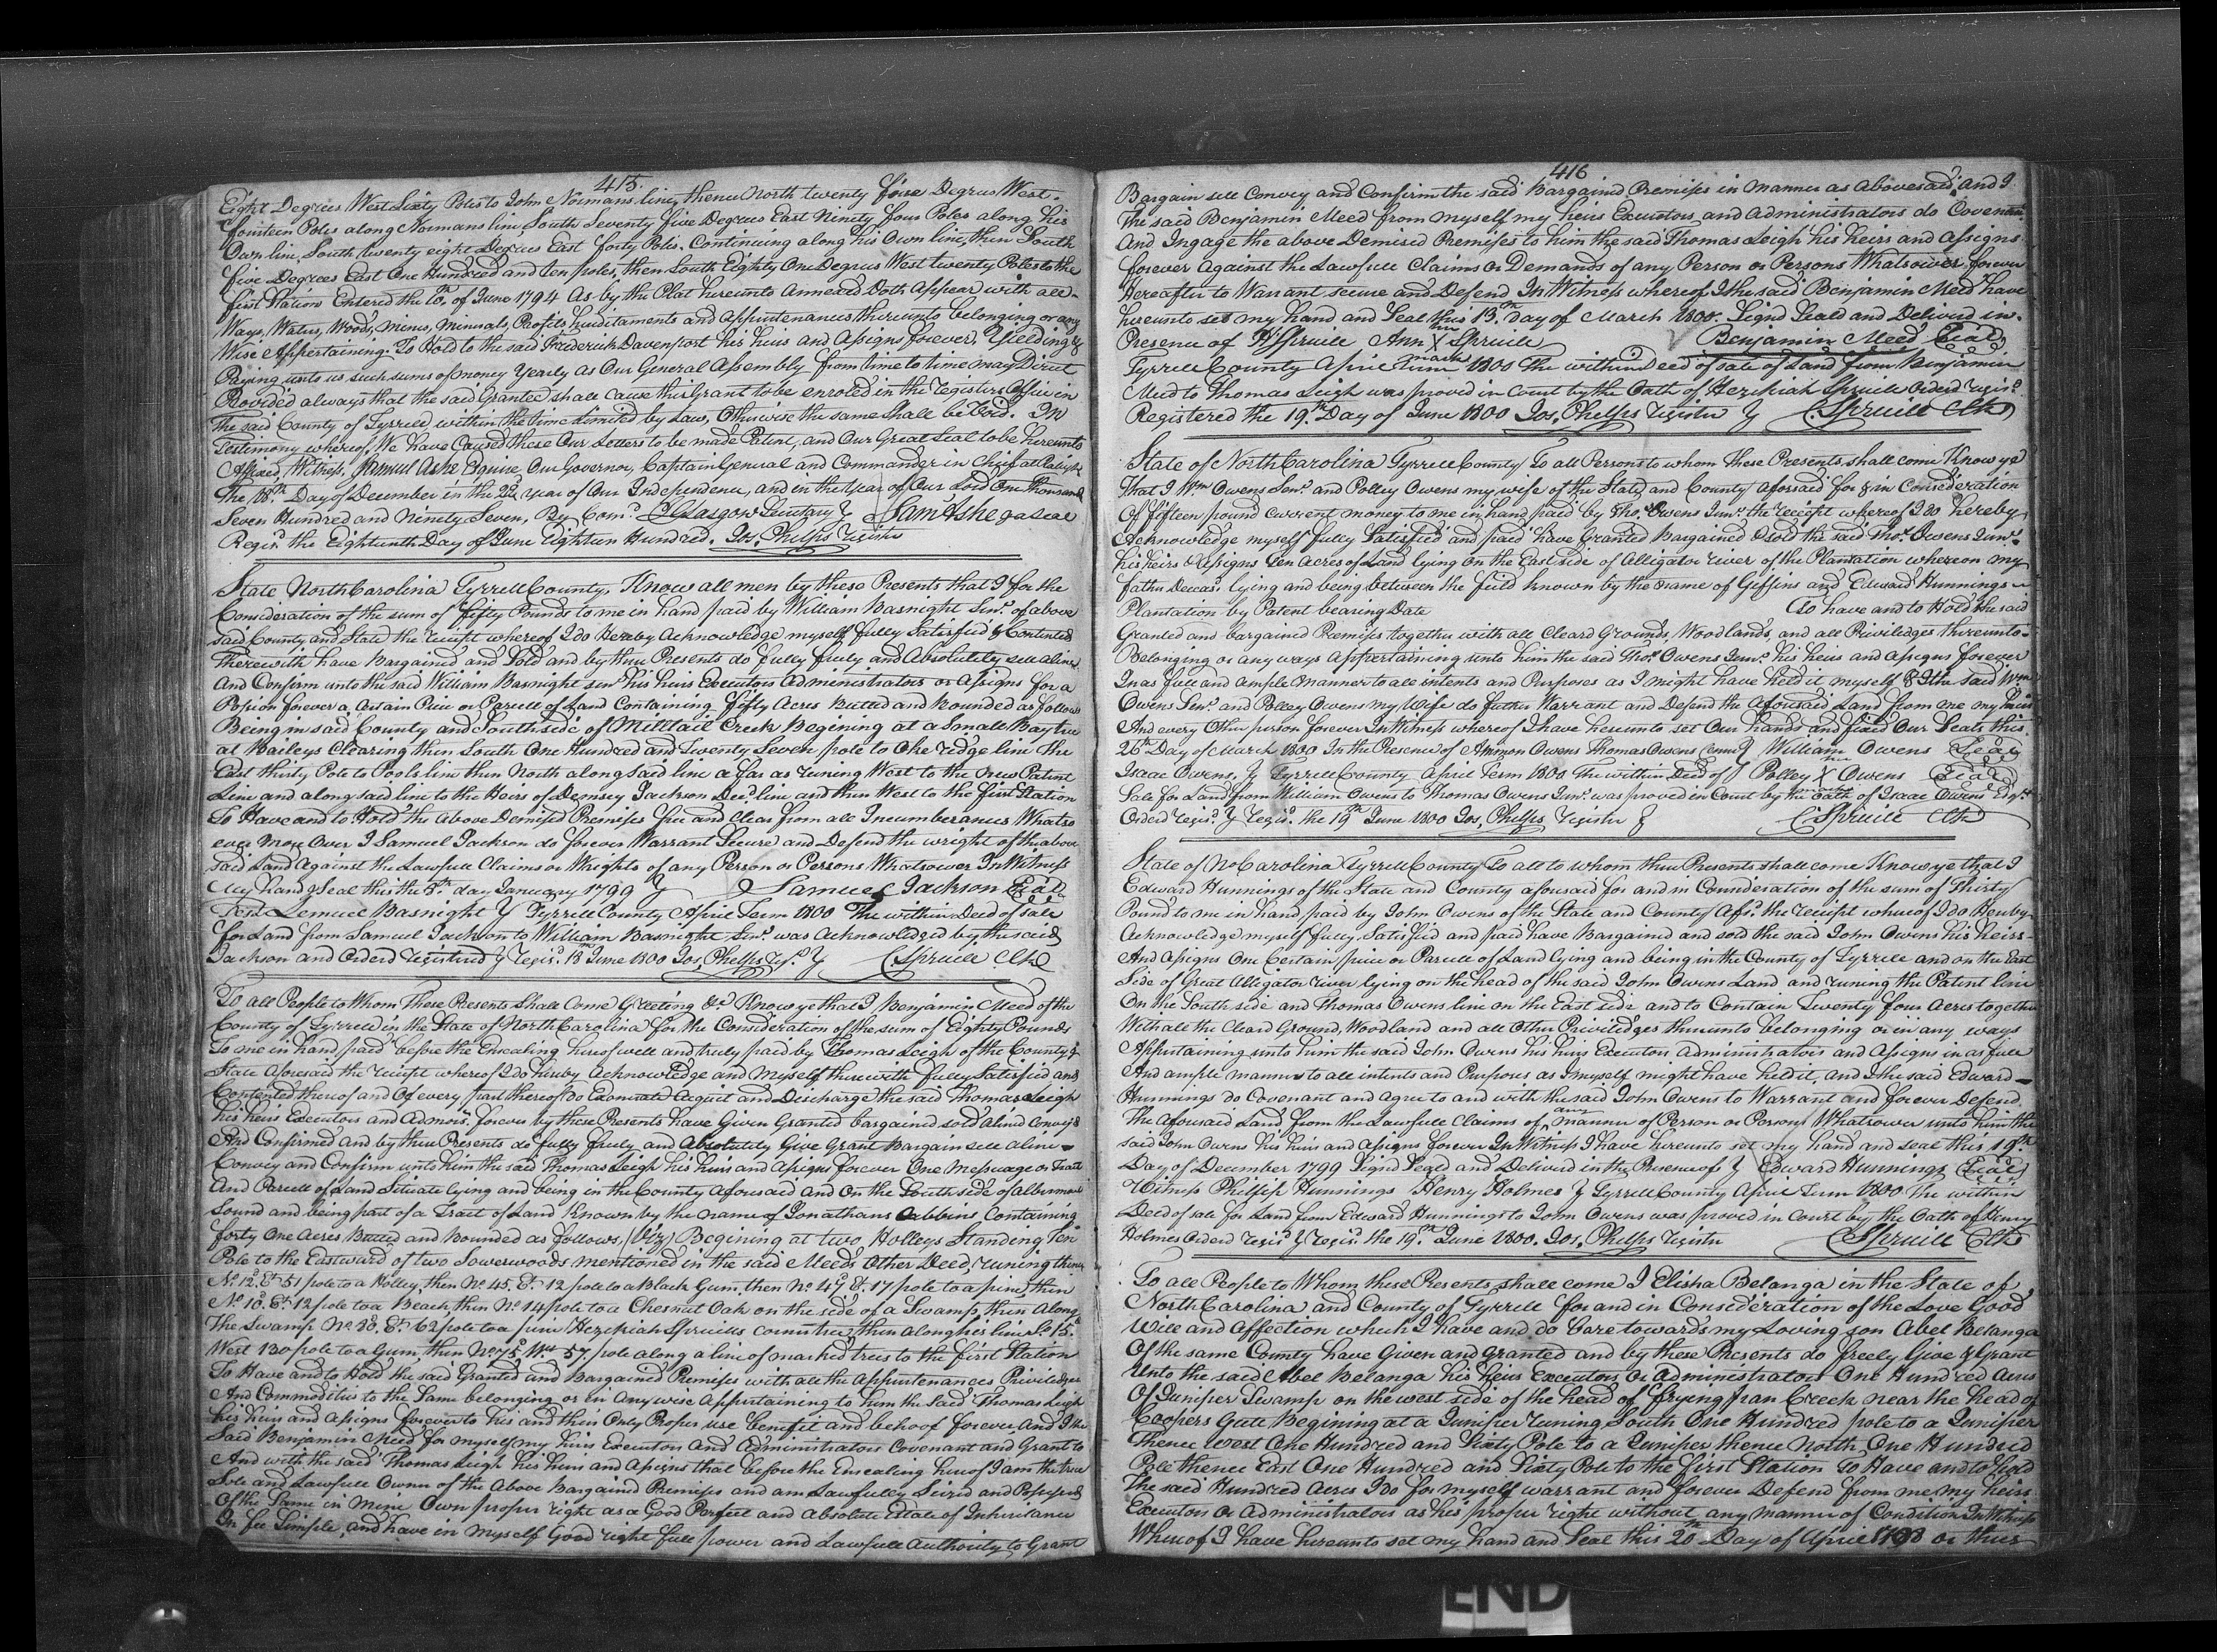 415.
Eight Degrees West Sixty Poles to John Normans line, thence North twenty five Degrees West.
fourteen Poles along Normans line South Seventy five Degrees East Ninety four Poles along his
Own line, South twenty eight Degrees East forty Poles. Continuing along his Own line, then South
five Degrees East One Hundred and ten poles, then South Eighty One Degrees West twenty Poles to the
first Station Entered the 10th of June 1794 As by the Plat hereunto Annexed Doth Appear with all
Ways, Waters, Woods, Mines, Minerals, Profits, hereditaments and Appurtenances thereunto belonging or any
Wise Appertaining. To Hold to the said Frederick Davenport his heirs and Assigns forever, Yielding &
Paying unto us such sums of money Yearly as Our General Assembly from time to time may Direct
Provided always that the said Grantee shall cause this Grant to be enroled in the Registers Office in
the said County of Tyrrell within the time Limited by Law, Otherwise the same Shall be Void. In
Testimony whereof, We have Caused these Our Letters to be made Patent, and Our Great Seal to be hereunto
Affixed, Witness, Samuel Ashe Esquire, Our Governor, Captain General and Commander in Chief at Raleigh
the 18th Day of December in the 22d year of Our Independence, and in the Year of Our Lord One thousand
Seven Hundred and Ninety Seven, By Comd. Glasgow Secretary } Saml Ashe
Regisd the Eighteenth Day of June Eighteen Hundred. Jos, Phelps Register
State North Carolina Tyrrell County, Know all men by these Presents that I for the
Consideration of the sum of fifty Pounds to me in hand paid by William Basnight Senr. of above
said County and State the receipt whereof I do Hereby Acknowledge myself fully Satisfied & Contented
Therewith have Bargained and Sold and by these Presents do fully freely and Absolutely sell aline
And Confirm unto the said William Basnight Senr his heirs Executors Administrators or Assigns for a
Posion forever a Certain Piece or Parcell of Land Containing fifty Acres Butted and bounded as follows
Being in said County and South side of Milltail Creek Begining at a Small Bay tree
at Baileys Clearing then South One Hundred and twenty Seven pole to Oke redge line the
East thirty Pole to Pools line then North along said line a far as runing West to the New Patent
Line and along said line to the Heirs of Demsey Jackson Decd line and then West to the first Station
To Have and to Hold the above Demised Premises free and Clear from all Incumberances Whatso
ever More Over I Samuel Jackson do forever Warrant Secure and Defend the wright of the above
said Land against the Lawfull Claims or Wrights of any Person or Persons Whatsoever In Witness
My Hand & Seal this the 5th day January 1799 } Samuel Jackson Seal
Test Lemuel Basnight } Tyrrell County April Term 1800 The within Deed of sale
for Land from Samuel Jackson to William Basnight Senr. was Acknowledged by the said
Jackson and Orderd Registered } Regis. 18 June 1800 Jos, Phelps } C Spruill Clk
To all People to Whom These Presents Shall Come Greeting &c Know ye that I Benjamin Meed of the
County of Tyrrell in the State of North Carolina for the Consideration of the sum of Eighty Pounds
To me in hand paid before the Ensealing hereof well and truly paid by Thomas Leigh of the County &
State Aforesaid the receipt whereof I do hereby Acknowledge and Myself therewith fully Satisfied and
Contented thereof and Of every part thereof do Exonerate Acquit and Discharge the said Thomas Leigh
his heirs Executors and Admors. forever by these Presents have Given Granted bargained sold Alined Convey'd
And Confirmed and by these Presents do fully freely and Absolutely Give Grant Bargain sell aline
Convey and Confirm unto him the said Thomas Leigh his heirs and Assigns forever One Messuage or Tract
And Parcell of Land Situate lying and being in the County Aforesaid and On the South side of Albermarle
Sound and being part of a Tract of Land Known by the name of Jonathans Cabbins Containing
forty One Acres Butted and Bounded as follows, (Viz) Begining at two Holleys Standing Ten
Pole to the Eastward of two Sowerwoods mentioned in the said Meeds Other Deed, runing thence
No 12. Et 51 pole to a Holley, then No 45. Et 12 pole to a Black Gum, then No 47 E. 17 pole to a pine, then
No 10. Et 12 pole to a Beach, then No 14 pole to a Chesnut Oak on the side of a Swamp, then Along
The Swamp No 20. Et. 62 pole to a pine Hezekiah Spruills corner tree, then along his line So 15.
West 130 pole to a Gum, then No 75 Wt 57. pole along a line of marked trees to the first Station
To Have and to Hold the said Granted and Bargained Premises with all the Appurtenances Priviledges
And Commodities to the Same belonging or in Any wise Appertaining to him the Said Thomas Leigh
his heirs and Assigns forever to his and their Only Proper use benefit and behoof forever, And I the
Said Benjamin Meed for myself my heirs Executors and Administrators Covenant and Grant to
And with the said Thomas Leigh his heirs and Assigns that before the Ensealing hereof I am the true
Sole and Lawfull Owner of the Above Bargaind Premises and am Lawfully Seized and Possessed
Of the Same in Mine Own proper right as a Good Perfect and absolute Estate of Inheritance
In fee Simple, and have in myself Good right full power and Lawfull Authority to Grant
416
Bargain sell Convey and Confirm the said Bargained Premises in manner as Abovesaid, And I
The said Benjamin Meed from myself my heirs Executors and Administrators do Covenant
And Ingage the above Demised Premises to him the said Thomas Leigh his heirs and Assigns
forever Against the Lawfull Claims or Demands of any Person or Persons Whatsoever forever
Hereafter to Warrant secure and Defend In Witness whereof I the said Benjamin Meed have
hereunto set my hand and Seal this 13th. day of March 1800. Signd Seald and Deliverd in
Presence of H Spruill Ann her X mark Spruill Benjamin Meed Seal
Tyrrell County April Term 1800 The within Deed of sale of Land from Benjamin
Meed to Thomas Leigh was proved in Court by the Oath of Hezekiah Spruill Orderd regisd
Registered the 19th Day of June 1800 Jos, Phelps Register } C Spruill Clk
State of North Carolina Tyrrell County To all Persons to whom These Presents shall come Know ye
That I Wm Owens Senr. and Polley Owens my wife of the State and County aforsaid for & in Consideration
Of fifteen pound current money to me in hand paid by Tho. Owens Junr. the receipt whereof I do hereby
Acknowledge myself fully Satisfied and paid have Granted Bargained & sold the said Thos. Owens Junr.
his heirs & Assigns Ten Acres of Land lying on the East side of Alligator river of the Plantation whereon my
father Decest. lying and being between the feild known by the name of Giffins and Edward Hunnings
Plantation by Patent bearing Date To have and to Hold the said
Granted and bargained Premises together with all Cleard Grounds, Woodlands, and all Priviledges thereunto
Belonging or any ways Appertaining unto him the said Thos. Owens Junr. his heirs and Assigns forever
In as full and ample Manner to all intents and Purposes as I might have held it myself & I the said Wm
Owens Senr. and Polley Owens my Wife do further Warrant and Defend the Aforesaid Land from me my heirs
And every Other person forever In Witness whereof I have hereunto set Our hands and fixed Our Seals this
26th Day of March 1800 In the Presence of Ammon Owens Thomas Owens } William Owens Seal
Isaac Owens. } Tyrrell County April Term 1800 The within Deed of } Polley her X mark Owens Seal
Sale for Land from William Owens to Thomas Owens Junr. was proved in Court by the Oath of Isaac Owens Esqr.
Orderd Regisd. } Regisd. the 19th June 1800 Jos, Phelps Register } C Spruill Clk
State of No Carolina Tyrrell County To all to whom these Presents shall come Know ye that I
Edward Hunnings of the State and County aforesaid for and in Consideration of the sum of Thirty
Pound to me in hand paid by John Owens of the State and County Afsd. the receipt whereof I do Hereby
Acknowledge myself fully Satisfied and paid have Bargained and sold the said John Owens his Heirs
And Assigns One Certain piece or Parcell of Land lying and being in the County of Tyrrell and on the East
Side of Great Alligator river lying on the head of the said John Owens Land and runing the Patent line
On the South side and Thomas Owens line on the East side and to Contain Twenty four Acres together
With all the Cleard Ground, Woodland and all Other Priviledges thereunto belonging or in any ways
Appertaining unto him the said John Owens his heirs Executors Administrators and Assigns in as full
And ample manner to all intents and Purposes as I myself might have held it, and I the said Edward
Hunnings do Covenant and agree to and with the said John Owens to Warrant and forever Defend
The aforesaid Land from the Lawfull Claims of any manner of Person or Persons Whatsoever unto him the
said John Owens his heirs and Assigns forever In Witness I have hereunto set my hand and seal this 19th
Day of December 1799 Signd Seald and Deliverd in the Presence of } Edward Hunnings Seal
Witness Phillip Hunnings Henry Holmes } Tyrrell County April Term 1800 The within
Deed of sale for Land from Edward Hunnings to John Owens was proved in Court by the Oath of Henry
Holmes Orderd Regisd. } Regisd. the 19th June 1800. Jos, Phelps Register C Spruill Clk
To all People to Whom these Presents shall come I Elisha Belanga in the State of
North Carolina and County of Tyrrell for and in Consideration of the Love Good
Will and Affection which I have and do bare towards my Loving son Abel Belanga
Of the same County have Given and Granted and by these Presents do freely Give & Grant
Unto the said Abel Belanga his heirs Executors Or Administrators One Hundred Acres
Of Juniper Swamp on the west side of the head of frying pan Creek near the head of
Coopers Gutt Begining at a Juniper runing South One Hundred pole to a Juniper
Thence West One Hundred and Sixty Pole to a Juniper thence North One Hundred
Pole thence East One Hundred and Sixty Pole to the first Station To Have and to hold
The said Hundred Acres I do for myself warrant and forever Defend from me my heirs
Executors or Administrators as his proper right without any manner of Condition In Witness
Whereof I have hereunto set my hand and Seal this 20th Day of April 1798 or thus
END